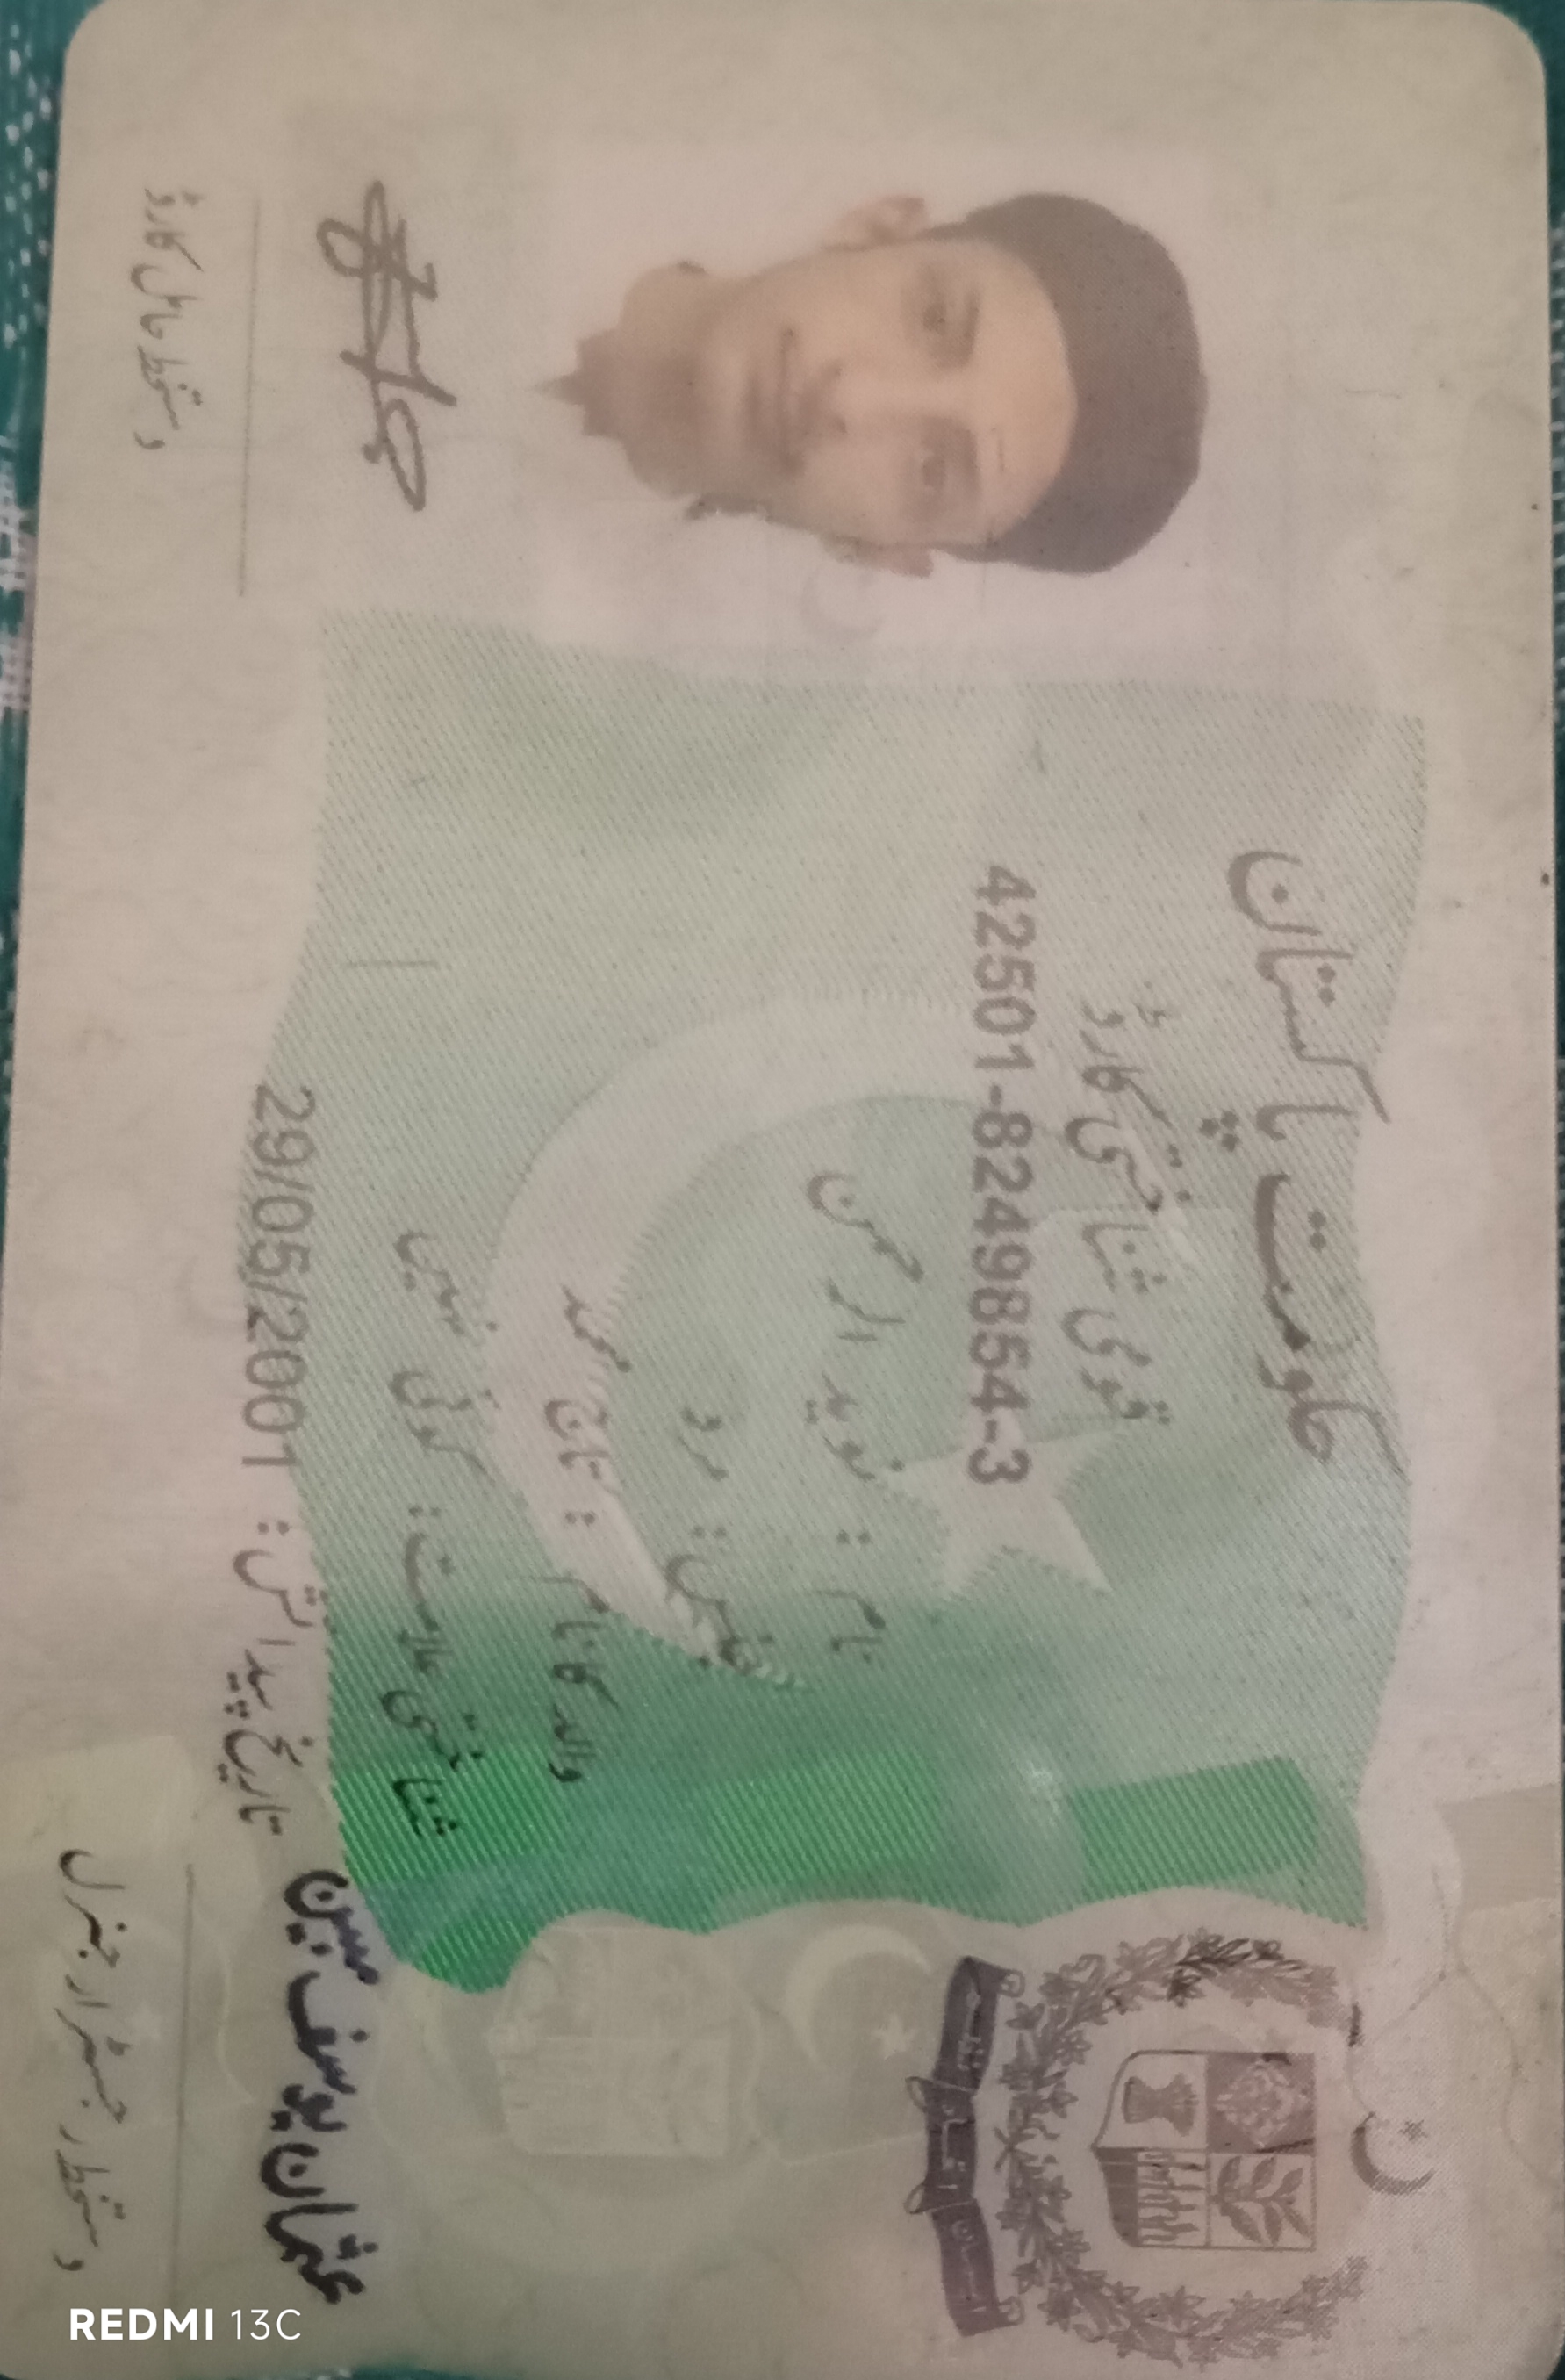 حکومت پاکستان
قومی شناختی کارڈ
42501-8249854-3
نام : نوید الرحمن
جنس : مرد
والد کا نام : تاج محمد
شناختی علامت : کوئی نہیں
تاریخ پیدائش : 29/05/2001
دستخط حامل کارڈ
عثمان یوسف مبین
دستخط رجسٹرار جنرل
REDMI 13C